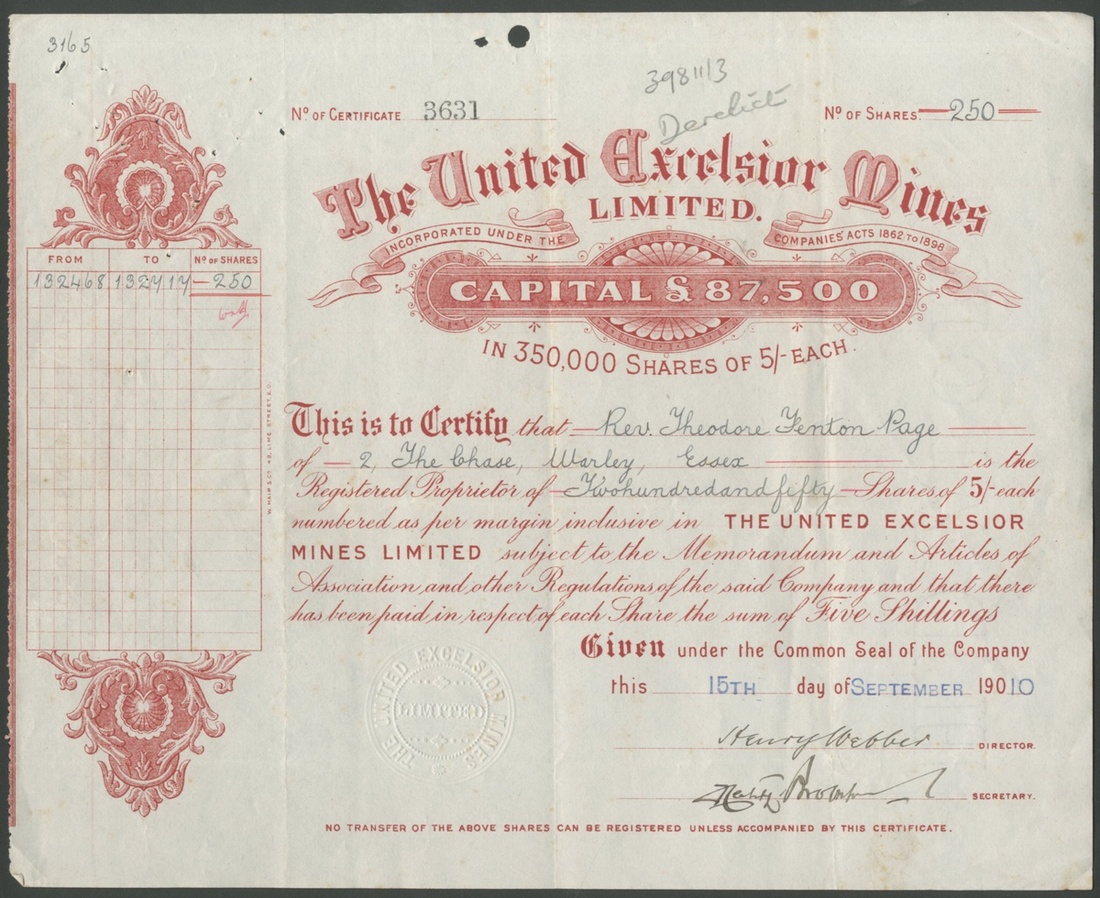 3165
39811/3
Derelict
No OF CERTIFICATE 3631
No OF SHARES. 250
The United Excelsior Mines
LIMITED.
INCORPORATED UNDER THE COMPANIES' ACTS 1862 TO 1898
CAPITAL £87,500
IN 350,000 SHARES OF 5/- EACH.
FROM TO No OF SHARES
132468 132717 250
This is to Certify that Rev. Theodore Fenton Page
of 2, The Chase, Warley, Essex is the
Registered Proprietor of Twohundredandfifty Shares of 5/- each
numbered as per margin inclusive in THE UNITED EXCELSIOR
MINES LIMITED subject to the Memorandum and Articles of
Association and other Regulations of the said Company and that there
has been paid in respect of each Share the sum of Five Shillings
Given under the Common Seal of the Company
this 15TH day of SEPTEMBER 19010
THE UNITED EXCELSIOR MINES
LIMITED
Henry Webber DIRECTOR.
SECRETARY.
NO TRANSFER OF THE ABOVE SHARES CAN BE REGISTERED UNLESS ACCOMPANIED BY THIS CERTIFICATE.